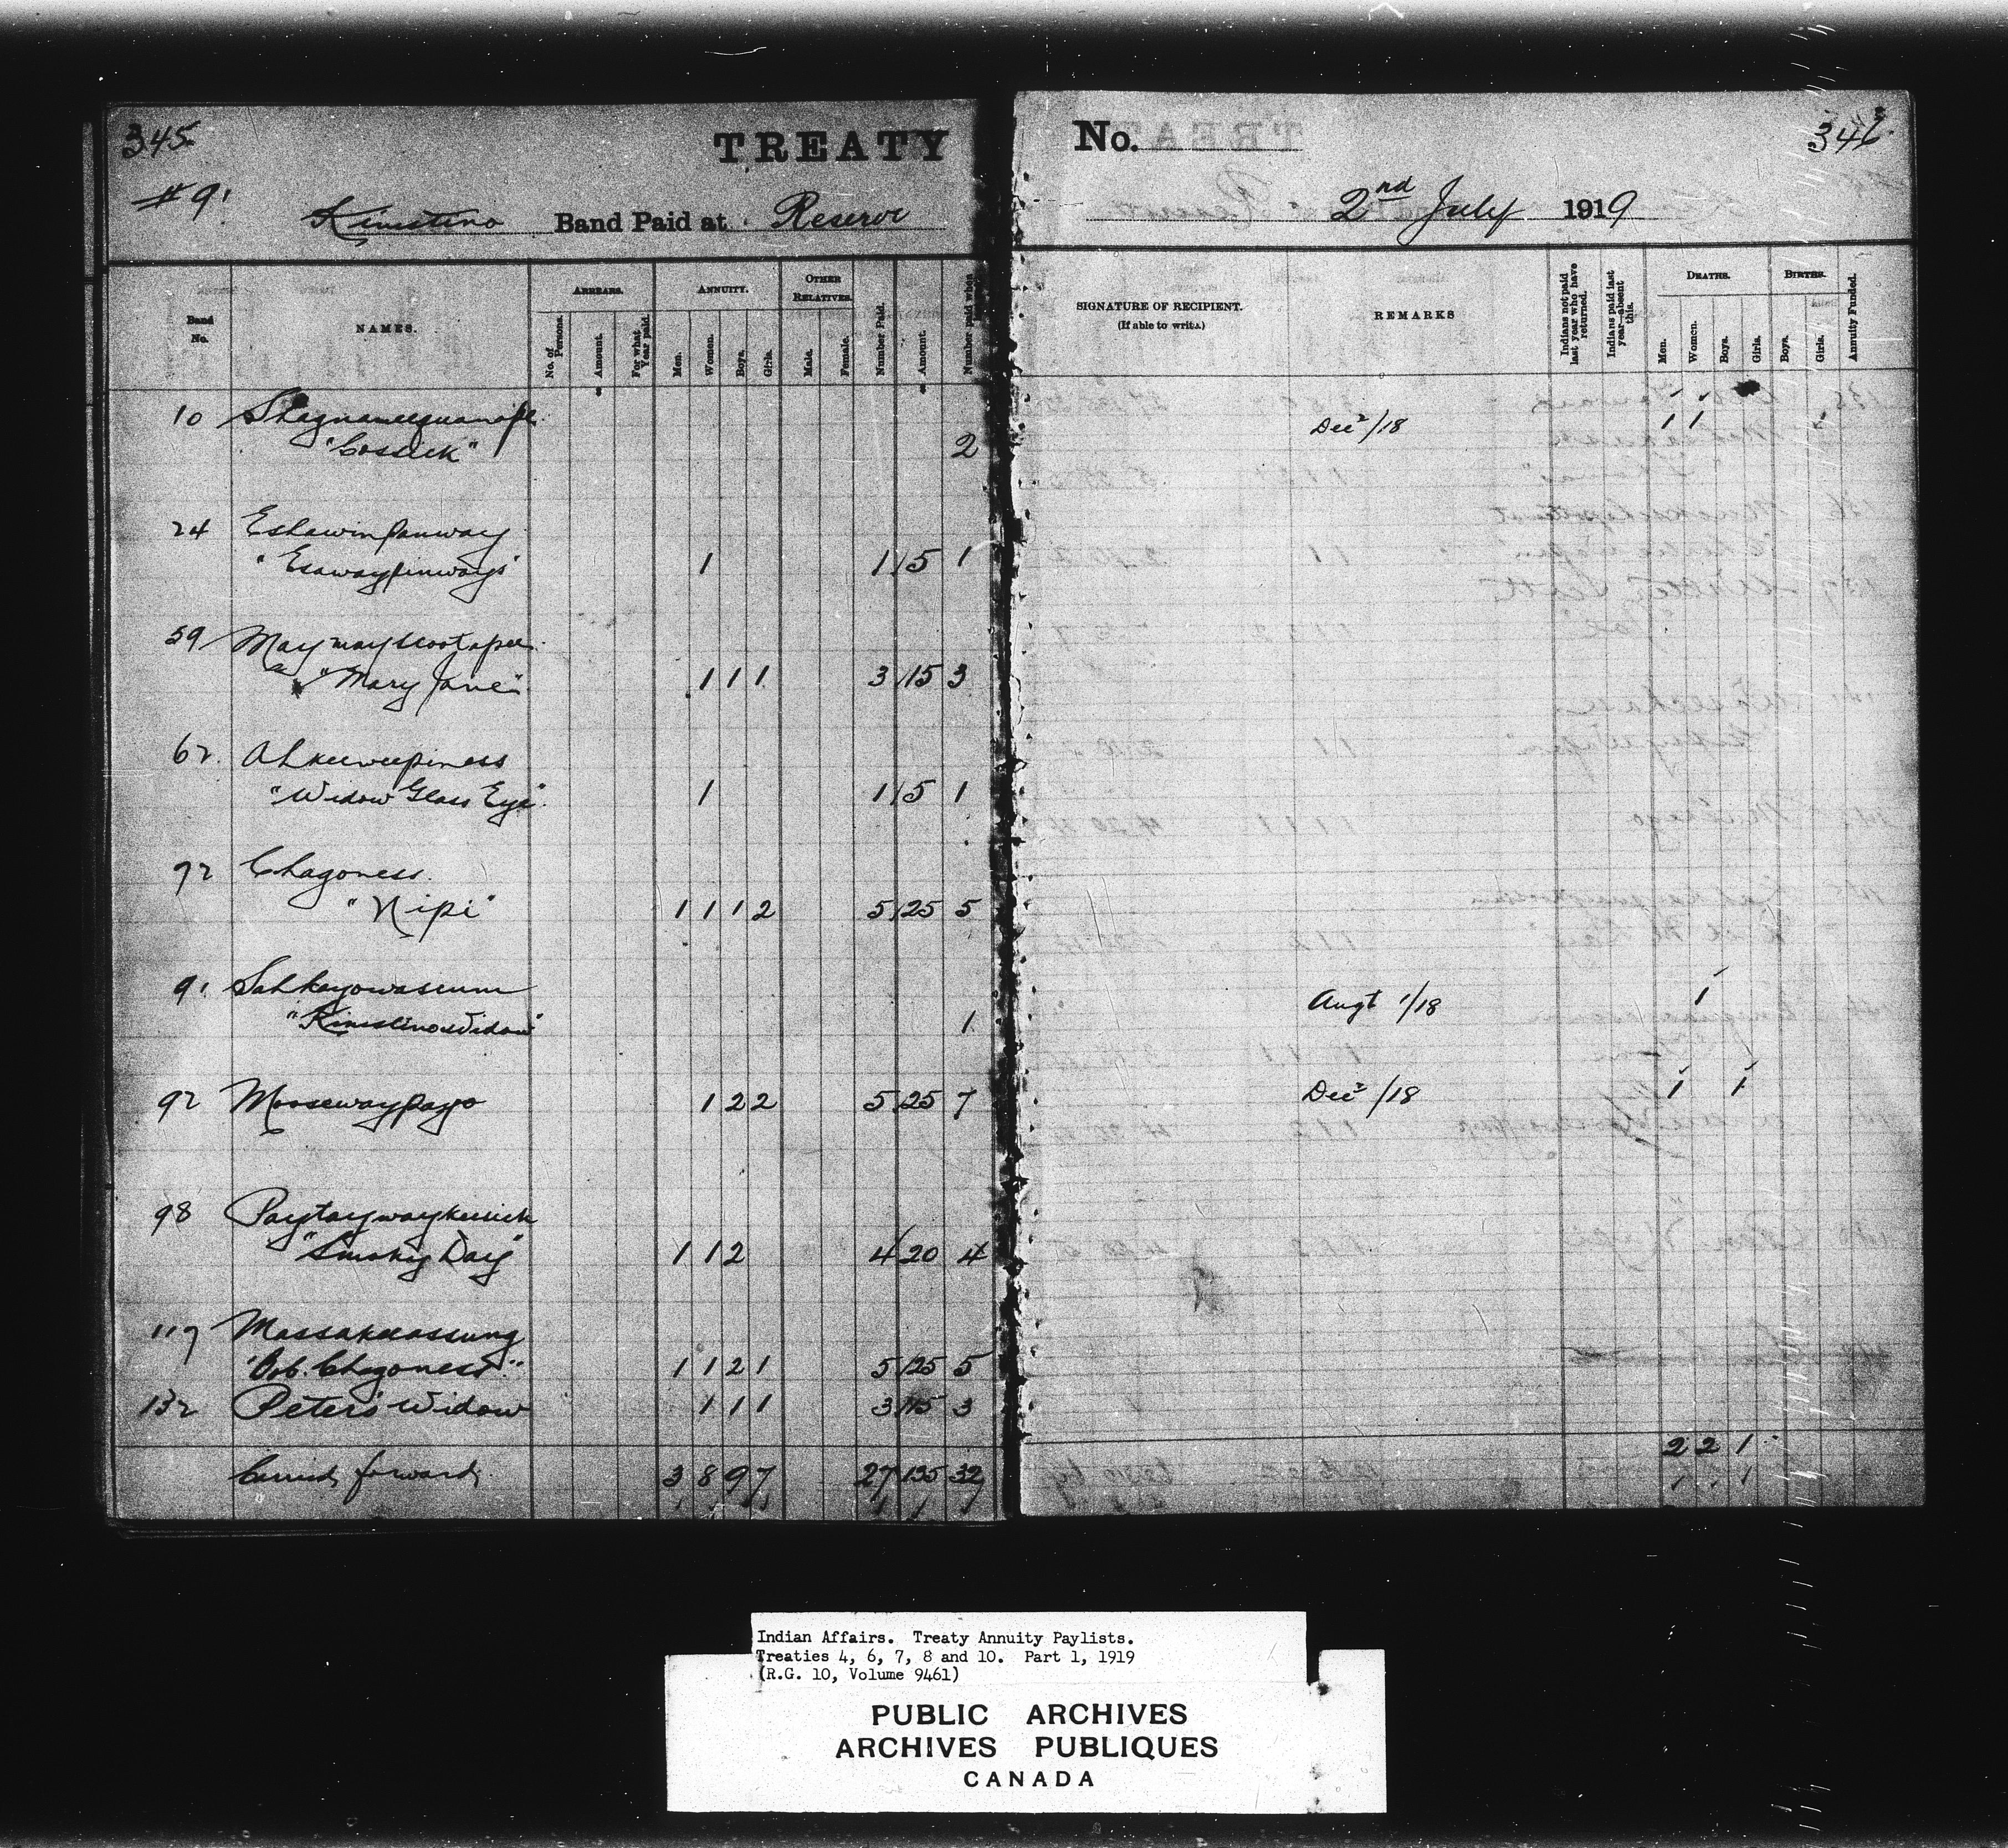 345
TREATY
No.
346
#91
Kinistino Band Paid at Reserve
2nd July 1919
Band No.
NAMES.
ARREARS.
No. of Persons.
Amount.
For what Year paid.
ANNUITY.
Men.
Women.
Boys.
Girls.
OTHER RELATIVES.
Male.
Female.
Number Paid.
Amount.
Number paid when
SIGNATURE OF RECIPIENT.
(If able to write.)
REMARKS
Indians not paid last year who have returned.
Indians paid last year—absent this.
DEATHS.
Men.
Women.
Boys.
Girls.
BIRTHS.
Boys.
Girls.
Annuity Funded.
10
"Cossick" 2 Dec 2/18 1 1
24 Eshawinpanway
"Esawaypinways" 1 1 5 1
59
"Mary Jane" 1 1 1 3 15 3
62 Ahkeeweepiness
"Widow Glass Eye" 1 1 5 1
72 Chagoness.
"Nipi" 1 1 1 2 5 25 5
91 Sahkayowaseum
"Kinistino Widow" 1 Augt 1/18 1
92 Moosewaypayo 1 2 2 5 25 7 Dec /18 1 1
98 Paytaywaykeesick
"Smoky Day" 1 1 2 4 20 4
117 Massakeeassung
"Bob. Chagoness" 1 1 2 1 5 25 5
132 Peter's Widow 1 1 1 3 15 3
2 2 1
Carried forward 3 8 9 7 27 135 32
Indian Affairs. Treaty Annuity Paylists.
Treaties 4, 6, 7, 8 and 10. Part 1, 1919
(R.G. 10, Volume 9461)
PUBLIC ARCHIVES
ARCHIVES PUBLIQUES
CANADA